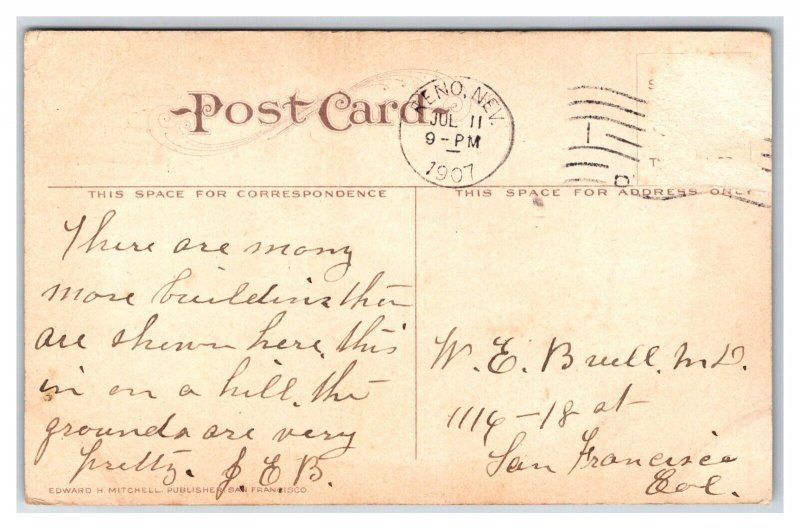 Post Card
RENO, NEV.
JUL 11
9-PM
1907
THIS SPACE FOR CORRESPONDENCE
THIS SPACE FOR ADDRESS ONLY
There are many
more buildings then
are shown here, this
in on a hill, the
grounds are very
pretty. J.E.B.
W. E. Buell, M.D.
1114-18 at
San Francisco
Cal.
EDWARD H. MITCHELL, PUBLISHER, SAN FRANCISCO